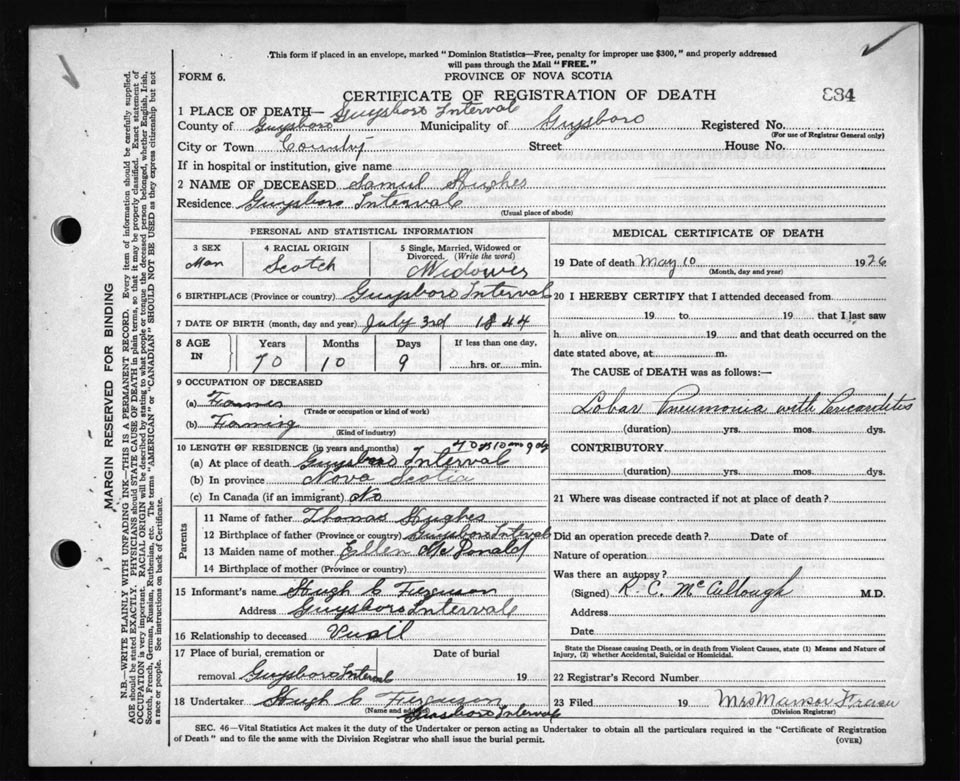 This form if placed in an envelope, marked "Dominion Statistics—Free, penalty for improper use $300," and properly addressed
will pass through the Mail "FREE."
FORM 6.
PROVINCE OF NOVA SCOTIA
CERTIFICATE OF REGISTRATION OF DEATH
834
1 PLACE OF DEATH— Guysboro Interval
County of Guysboro Municipality of Guysboro Registered No.
(For use of Registrar General only)
City or Town County Street House No.
If in hospital or institution, give name
2 NAME OF DECEASED Samuel Hughes
Residence Guysboro Interval
(Usual place of abode)
PERSONAL AND STATISTICAL INFORMATION
3 SEX
Man
4 RACIAL ORIGIN
Scotch
5 Single, Married, Widowed or
Divorced. (Write the word)
Widower
6 BIRTHPLACE (Province or country) Guysboro Interval
7 DATE OF BIRTH (month, day and year) July 3rd 1844
8 AGE
IN
Years Months Days If less than one day,
70 10 9 hrs. or min.
9 OCCUPATION OF DECEASED
(a) Farmer
(Trade or occupation or kind of work)
(b) Farming
(Kind of industry)
10 LENGTH OF RESIDENCE (in years and months) 70 10 9
(a) At place of death Guysboro Interval
(b) In province Nova Scotia
(c) In Canada (if an immigrant) No
Parents
11 Name of father Thomas Hughes
12 Birthplace of father (Province or country) Guysboro Interval
13 Maiden name of mother Ellen McDonald
14 Birthplace of mother (Province or country)
15 Informant's name Hugh C Ferguson
Address Guysboro Interval
16 Relationship to deceased
17 Place of burial, cremation or Date of burial
removal Guysboro Interval 19
18 Undertaker Hugh C Ferguson
(Name and address)
Guysboro Interval
MEDICAL CERTIFICATE OF DEATH
19 Date of death May 10 1926
(Month, day and year)
20 I HEREBY CERTIFY that I attended deceased from
19 to 19 that I last saw
h alive on 19 and that death occurred on the
date stated above, at m.
The CAUSE of DEATH was as follows:—
Lobar Pneumonia with
(duration) yrs. mos. dys.
CONTRIBUTORY
(duration) yrs. mos. dys.
21 Where was disease contracted if not at place of death?
Did an operation precede death? Date of
Nature of operation
Was there an autopsy?
(Signed) R. C. McCullough M.D.
Address
Date
State the Disease causing Death, or in death from Violent Causes, state (1) Means and Nature of
Injury, (2) whether Accidental, Suicidal or Homicidal.
22 Registrar's Record Number
23 Filed 19 Mrs
(Division Registrar)
SEC. 46—Vital Statistics Act makes it the duty of the Undertaker or person acting as Undertaker to obtain all the particulars required in the "Certificate of Registration
of Death" and to file the same with the Division Registrar who shall issue the burial permit.
(OVER)
MARGIN RESERVED FOR BINDING
N.B.—WRITE PLAINLY WITH UNFADING INK—THIS IS A PERMANENT RECORD. Every item of information should be carefully supplied.
AGE should be stated EXACTLY. PHYSICIANS should STATE CAUSE OF DEATH in plain terms, so that it may be properly classified. Exact statement of
OCCUPATION is very important. RACIAL ORIGIN will be described by stating to what people or tongue the deceased person belonged, whether English, Irish,
Scotch, French, German, Russian, Ruthenian, etc. The terms "AMERICAN" or "CANADIAN" SHOULD NOT BE USED as they express citizenship but not
a race or people. See instructions on back of Certificate.